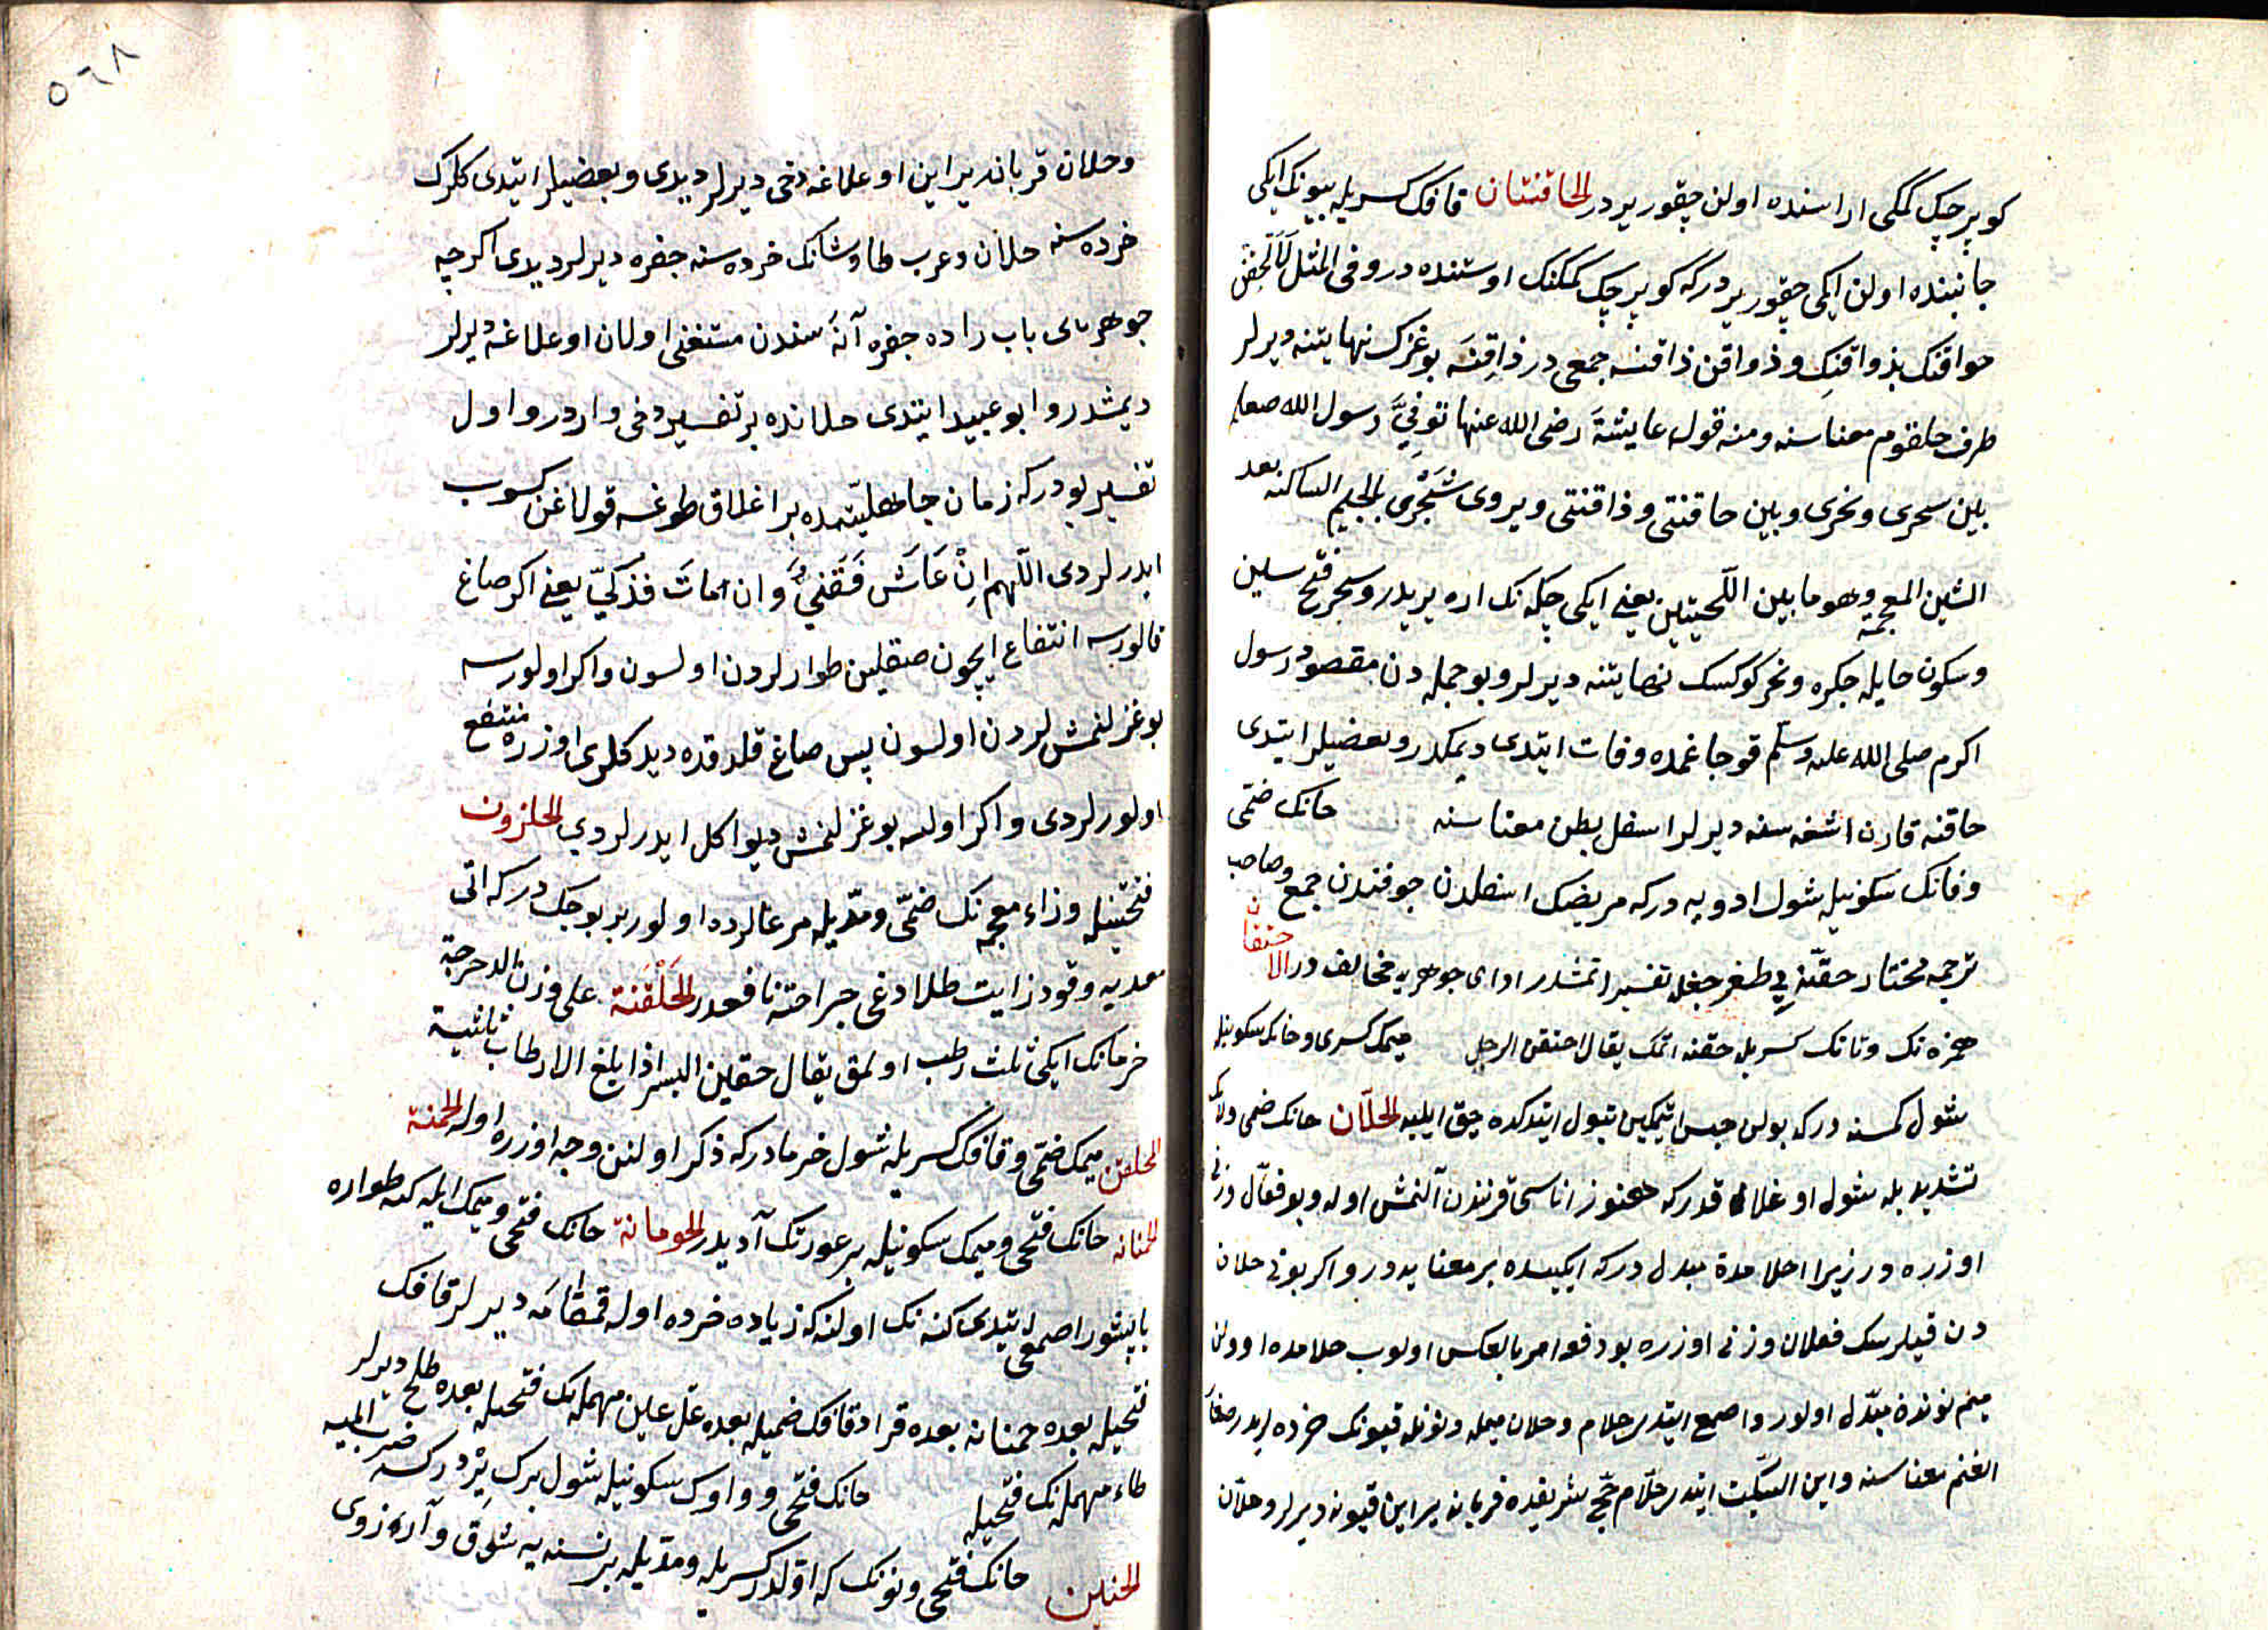 كوپرجك كمكی اراسنده اولن چقور یردر الحاقنتان قافك كسریله بیونك ایكی
جانبنده اولن ایكی چقور یردر كه كوپرجك كمكنك اوستنده در وفی المثل لألحقن
حواقنك بذواقنك وذواقن ذاقنه جمعی در ذاقنه بوغزك نهایتنه دیرلر
طرف حلقوم معناسنه ومنه قوله عایشة رضی الله عنها توفی رسول الله صعلم
بین سحری ونحری وبین حاقنتی وذاقنتی ویروی شجری بالجیم الساكنه بعد
الشین المعجمة وهو ما بین اللحیتین یعنی ایكی چكه نك اره یریدر وسحر فتح سین
وسكون حایله جكره ونحر كوكسك نهایتنه دیرلر وبو جمله دن مقصود رسول
اكرم صلی الله علیه وسلم قوجاغمده وفات ایتدی دیمكدر وبعضیلر ایتدی
حاقنه قارن اشغه سنه دیرلر اسفل بطن معناسنه حانك ضمی
وفانك سكونیله شول ادویه در كه مریضك اسفلدن جوفندن جمع وصاحب
ترجمه مختار حقنه یی طغرجغله تفسیر اتمشدر ادای جوهریه مخالف در الاحتقان
همزه نك وتانك كسریله حقنه اتمك یقال احتقن الرجل میمك كسری وخانك سكونیله
شول كمسنه در كه بولی حبس ایتمكین تبول ایتدكده چق ایلیه الحلّان حانك ضمی ولامك
تشدیدیله شول اوغلاقدر كه هنوز اناسی قرنندن آلنمش اوله وبو فعّال وزنی
اوزره در زیرا احلامدة مبدل در كه ایكیسده بر معنایه در واكر بونی حلان
دن قیلرسك فعلان وزنی اوزره بو دفعه امر بالعكس اولوب حلامده اوولن
میم نوندن مبدل اولور واصمعی ایتدی حلام وحلان میمله ونونله قیونك خرده لریدر صغار
الغنم معناسنه وابن السكیت ایتدی حلام حج شریفده قربانه یراین قیونه دیرلر وحلان
٥٦٨
وحلان قربانه یراین اوغلاغه دخی دیرلر دیدی وبعضیلر ایتدی كلرك
خرده سنه حلان وعرب طاوشانك خرده سنه جفره دیرلر دیدی اكرچه
جوهری بای باب راده جفره آنه سندن مستغنی اولان اوغلاغه دیرلر
دیمشدر وابو عبید ایتدی حلانده بر تفسیر دخی واردر واول
تفسیر بودر كه زمان جاهلیتمده بر اغلاق طوغسه قولاغن كسوب
ایدرلردی اللهم ان عاش فقنیّ وان مات فذكیّ یعنی اكر صاغ
قالورسه انتفاع ایچون صقلین طوارلردن اولسون واكر اولورسه
بوغزلنمشلردن اولسون پس صاغ قلدقده دیدكلری اوزره منتفع
اولورلردی واكر اولسه بوغزلنمش دیو اكل ایدرلردی الحلزون
فتحتینله وزاء معجمه نك ضمی ومدیله مرعالرده اولور بر بوجكدر كه اتی
معدیه وقودز ایت طلادغی جراحته نافعدر الحلقنة علی وزن الدحرجة
خرمانك ایكی ثلث رطب اولمق یقال حقین البسر اذا بلغ الارطاب ثلثیه
المحلقن میمك ضمی وقافك كسریله شول خرما در كه ذكر اولنن وجه اوزره اوله الحمنة
الحمنانه حانك فتحی ومیمك سكونیله بر عورتك آدیدر الحومانة حانك فتحی ومیمك ایله كنه طواره
یاپیشور اصمعی ایتدی كنه نك اولنكه زیاده خرده اوله قمقامه دیرلر قافك
فتحیله بعده حمنانه بعده قراد قافك ضمیله بعده علّ عین مهمله نك فتحیله بعده طلح دیرلر
طاء مهمله نك فتحیله حانك فتحی وواوك سكونیله شول برك یردر كه
الحنین حانك فتحی ونونك كه اوّلدر كسریله ومدیله بر نسنه یه شوق وآرزوی